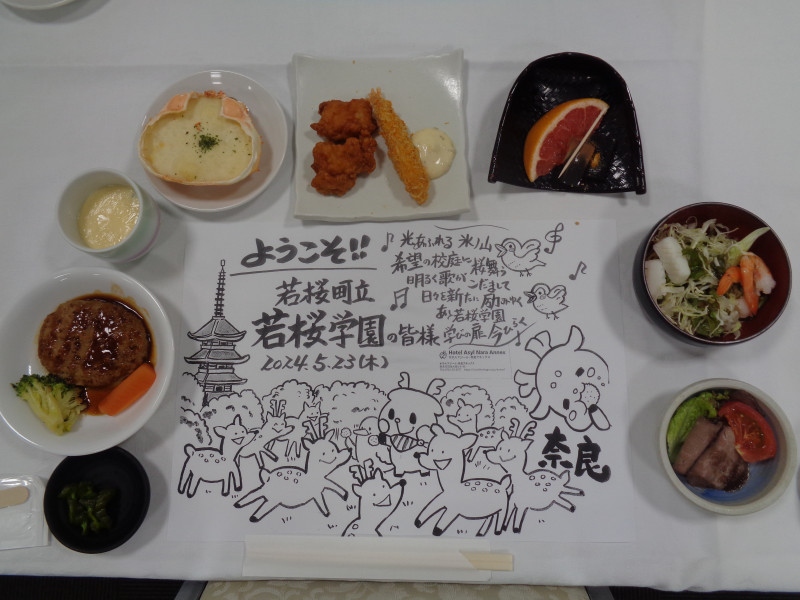 ようこそ!!
若桜町立
若桜学園の皆様
2024.5.23(木)
光あふれる 氷ノ山
希望の校庭に 桜舞う
明るく歌が こだまして
日々を新たに 励みゆく
あゝ若桜学園
学びの扉 今ひらく
Hotel Asyl Nara Annex
奈良